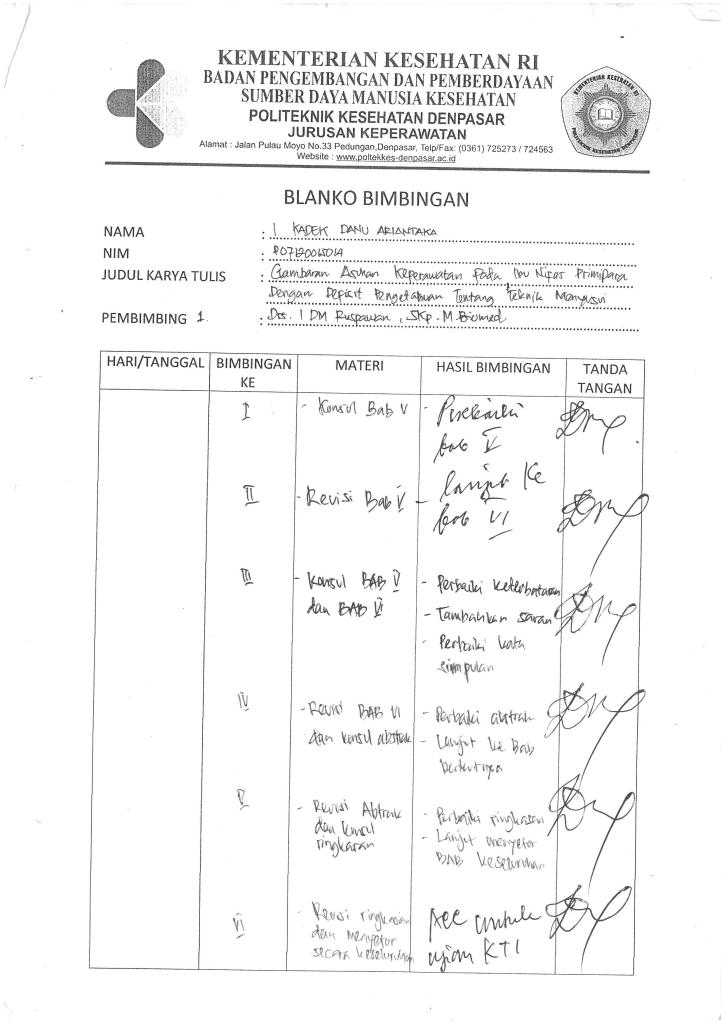 KEMENTERIAN KESEHATAN RI
BADAN PENGEMBANGAN DAN PEMBERDAYAAN
SUMBER DAYA MANUSIA KESEHATAN
POLITEKNIK KESEHATAN DENPASAR
JURUSAN KEPERAWATAN
Alamat : Jalan Pulau Moyo No.33 Pedungan,Denpasar, Telp/Fax: (0361) 725273 / 724563
Website : www.poltekkes-denpasar.ac.id
KEMENTERIAN KESEHATAN RI
POLITEKNIK KESEHATAN DENPASAR
BLANKO BIMBINGAN
NAMA : I KADEK DANU ARIANTAKA
NIM : P07120015014
JUDUL KARYA TULIS : Gambaran Asuhan Keperawatan Pada Ibu Nifas Primipara
Dengan Depisit Pengetahuan Tentang Teknik Menyusui
PEMBIMBING 1. : Drs. I DM Ruspawan, SKp. M Biomed
HARI/TANGGAL BIMBINGAN KE MATERI HASIL BIMBINGAN TANDA TANGAN
I - Konsul Bab V - Perbaiki
bab V
II - Revisi Bab V - Lanjut Ke
bab VI
III - Konsul BAB V - Perbaiki keterbatasan
dan BAB VI - Tambahkan saran
- Perbaiki kata
simpulan
IV - Revisi BAB VI - Perbaiki abstrak
dan konsul abstrak - Lanjut ke Bab
berikutnya
V - Revisi Abtrak - Perbaiki ringkasan
dan konsul - Lanjut menyetor
ringkasan BAB keseluruhan
VI - Revisi ringkasan Acc untuk
dan menyetor ujian KTI
secara keseluruhan